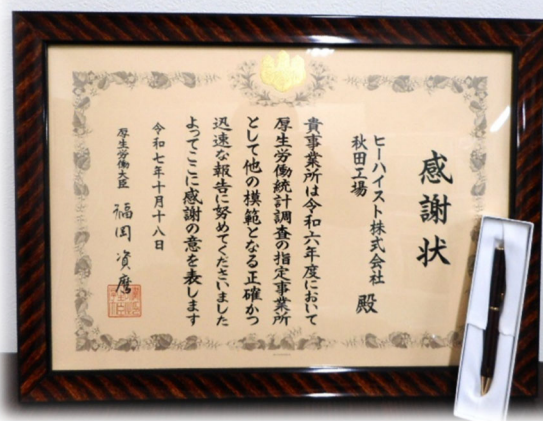 感謝状
ヒーハイスト株式会社
秋田工場
殿
貴事業所は令和六年度において
厚生労働統計調査の指定事業所
として他の模範となる正確かつ
迅速な報告に努めてくださいました
よってここに感謝の意を表します
令和七年十月十八日
厚生労働大臣 福岡資麿